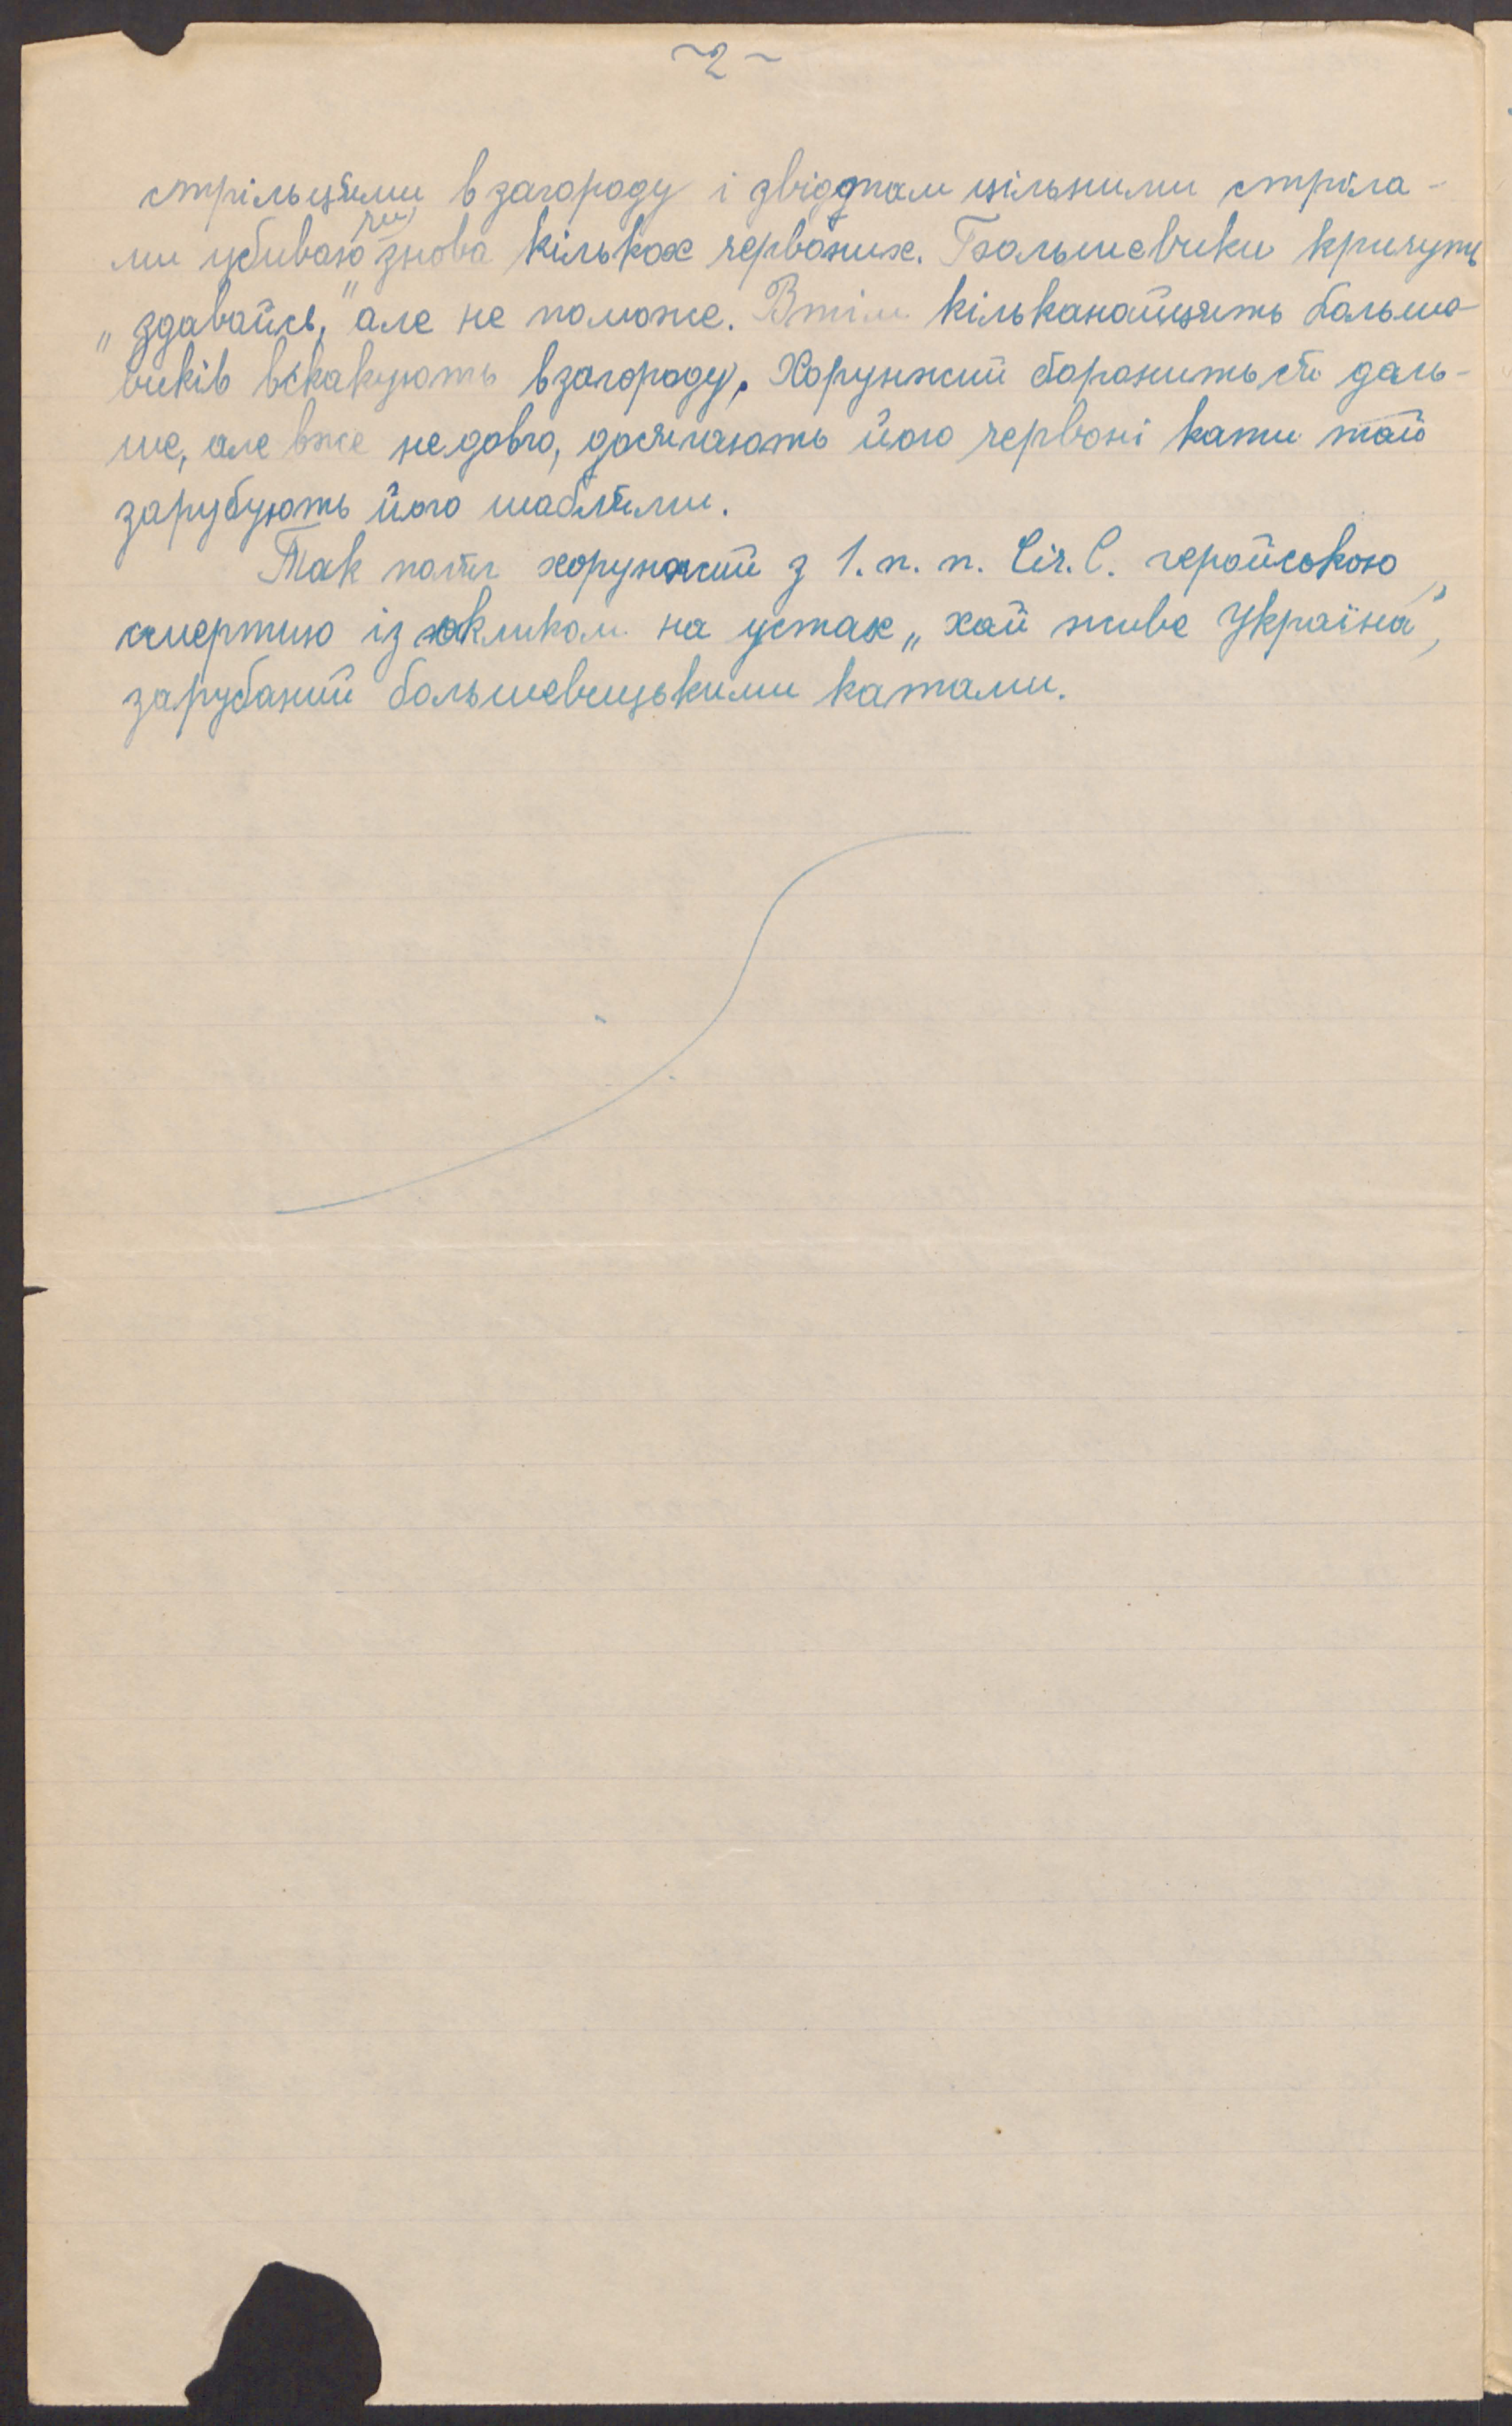 ~2~
стрільцями в загороду і звідтам цільними стріла-
ми убиваю знова кількох червоних. Большевики кричуть
„здавайсь," але не поможе. Втім кільканайцять больше-
виків вскакують в загороду. Хорунжий боронить ся даль-
ше, але вже недовго, досягають його червоні кати тай
зарубують його шаблями.
Так поляг хорунжий з 1. п. п. Січ. С. геройською
смертию із окликом на устах „хай живе Україна",
зарубаний большевицькими катами.